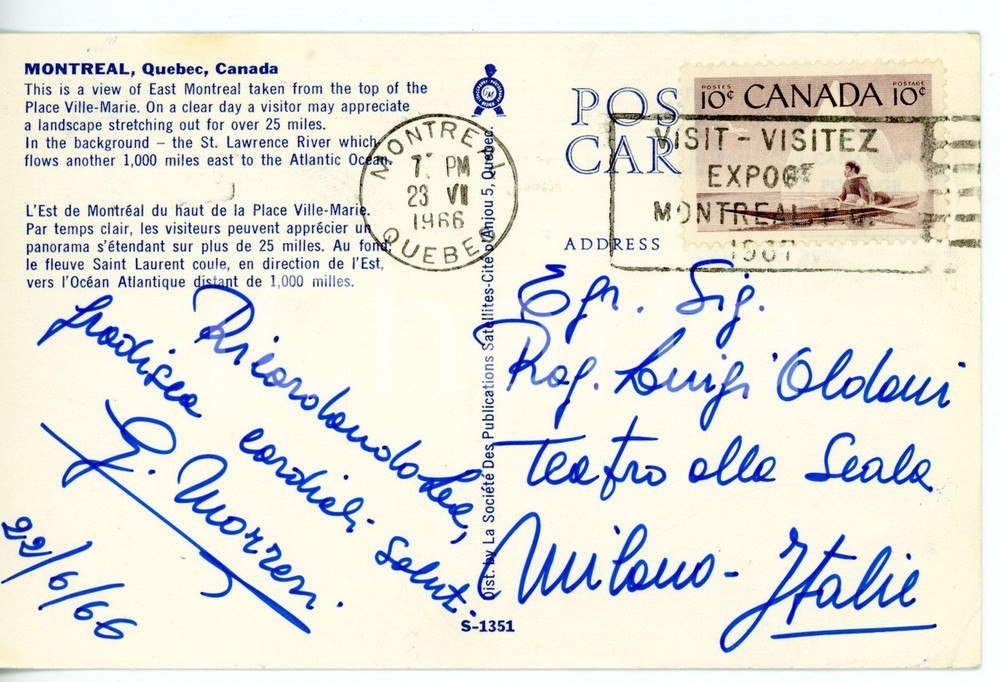 MONTREAL, Quebec, Canada
This is a view of East Montreal taken from the top of the
Place Ville-Marie. On a clear day a visitor may appreciate
a landscape stretching out for over 25 miles.
In the background – the St. Lawrence River which
flows another 1,000 miles east to the Atlantic Ocean.
L'Est de Montréal du haut de la Place Ville-Marie.
Par temps clair, les visiteurs peuvent apprécier un
panorama s'étendant sur plus de 25 milles. Au fond,
le fleuve Saint Laurent coule, en direction de l'Est,
vers l'Océan Atlantique distant de 1,000 milles.
Ricordandola,
gradisca cordiali saluti.
G. Morren.
22/6/66
MONTREAL
PM
23 VI
1966
QUEBEC
Dist. by La Société Des Publications Satellites-Cité d'Anjou 5, Quebec.
S-1351
POS
CAR
ADDRESS
POSTES POSTAGE
10¢ CANADA 10¢
VISIT - VISITEZ
EXPO67
MONTREAL P.Q.
1967
Egr. Sig.
Rag. Luigi Oldani
Teatro alla Scala
Milano - Italie